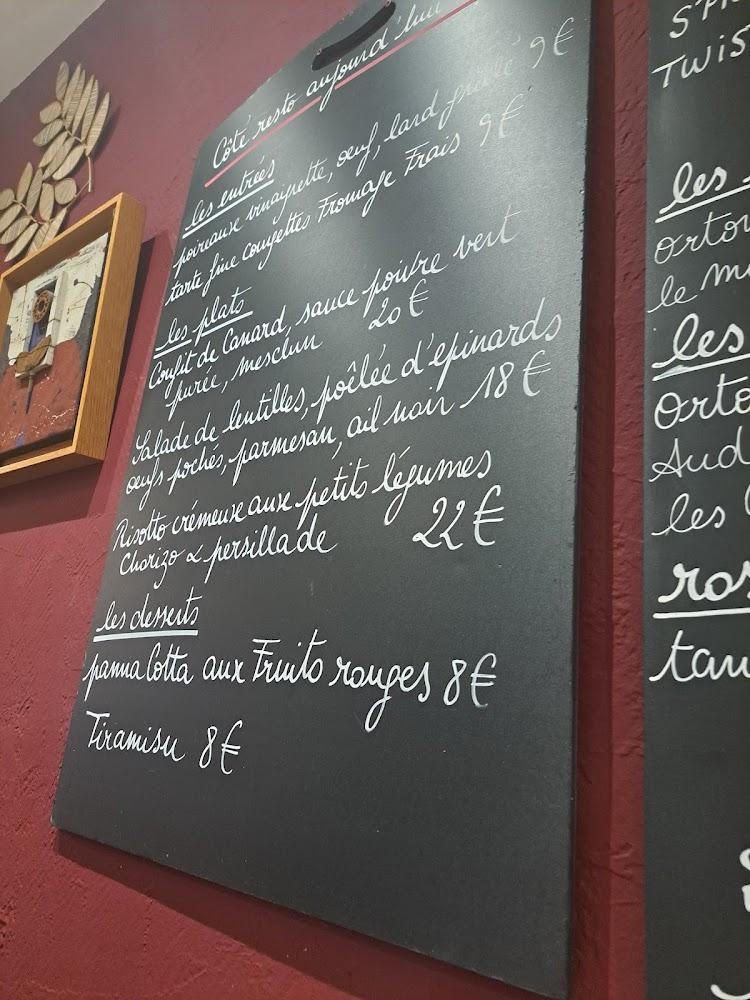 Côté resto aujourd'hui
les entrées
poireaux vinaigrette, oeuf, lard grillé 9€
tarte fine courgettes Fromage Frais 9€
les plats
Confit de Canard, sauce poivre vert
purée, mesclun 20€
Salade de lentilles, poêlée d'epinards
oeufs pochés, parmesan, ail noir 18€
Risotto crémeux aux petits légumes
Chorizo & persillade 22€
les desserts
panna Cotta aux Fruits rouges 8€
Tiramisu 8€
TWIS
les
ortou
le m
les
Orto
Aud
les
ros